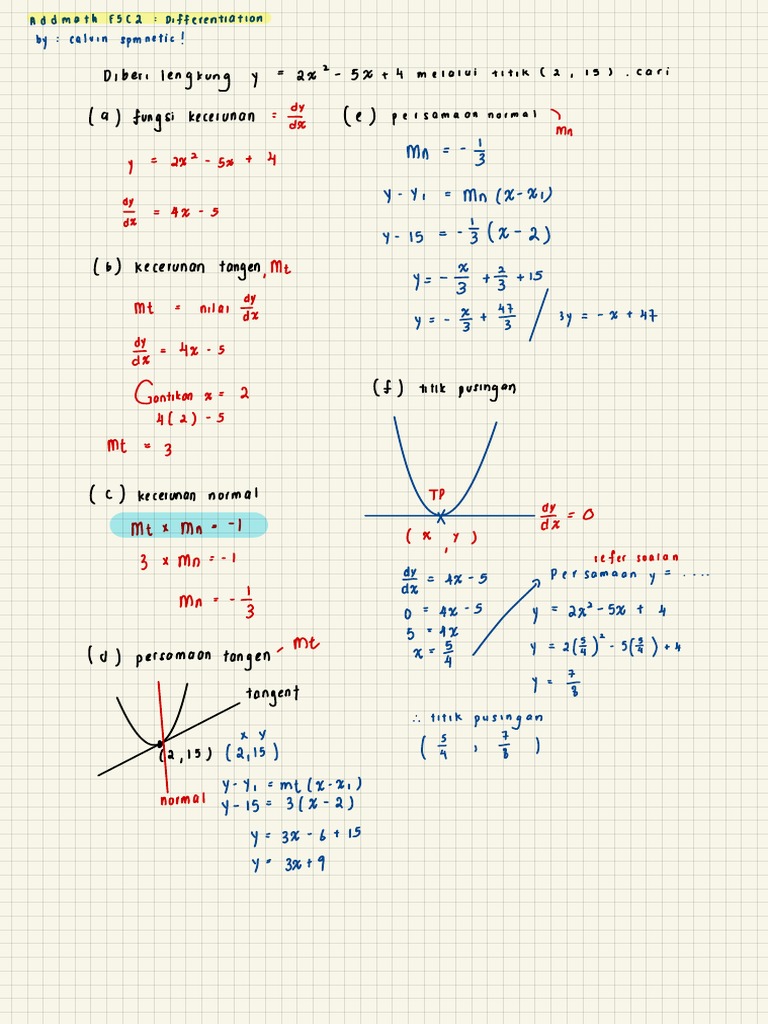 Addmath F5C2 : Differentiation
by : calvin spmnetic!
Diberi lengkung y = 2x² - 5x + 4 melalui titik (2, 15). cari
(a) fungsi kecerunan = dy/dx
y = 2x² - 5x + 4
dy/dx = 4x - 5
(b) kecerunan tangen, Mt
mt = nilai dy/dx
dy/dx = 4x - 5
Gantikan x = 2
4(2) - 5
mt = 3
(c) kecerunan normal
mt × mn = -1
3 × mn = -1
mn = - 1/3
(d) persamaan tangen - mt
tangent
(2,15)
x y
(2,15)
normal
y - y₁ = mt(x - x₁)
y - 15 = 3(x - 2)
y = 3x - 6 + 15
y = 3x + 9
(e) persamaan normal
mn
mn = - 1/3
y - y₁ = mn(x - x₁)
y - 15 = - 1/3 (x - 2)
y = - x/3 + 2/3 + 15
y = - x/3 + 47/3 / 3y = - x + 47
(f) titik pusingan
TP
dy/dx = 0
(x, y)
dy/dx = 4x - 5
0 = 4x - 5
5 = 4x
x = 5/4
refer soalan
Persamaan y = ....
y = 2x² - 5x + 4
y = 2(5/4)² - 5(5/4) + 4
y = 7/8
∴ titik pusingan
(5/4, 7/8)